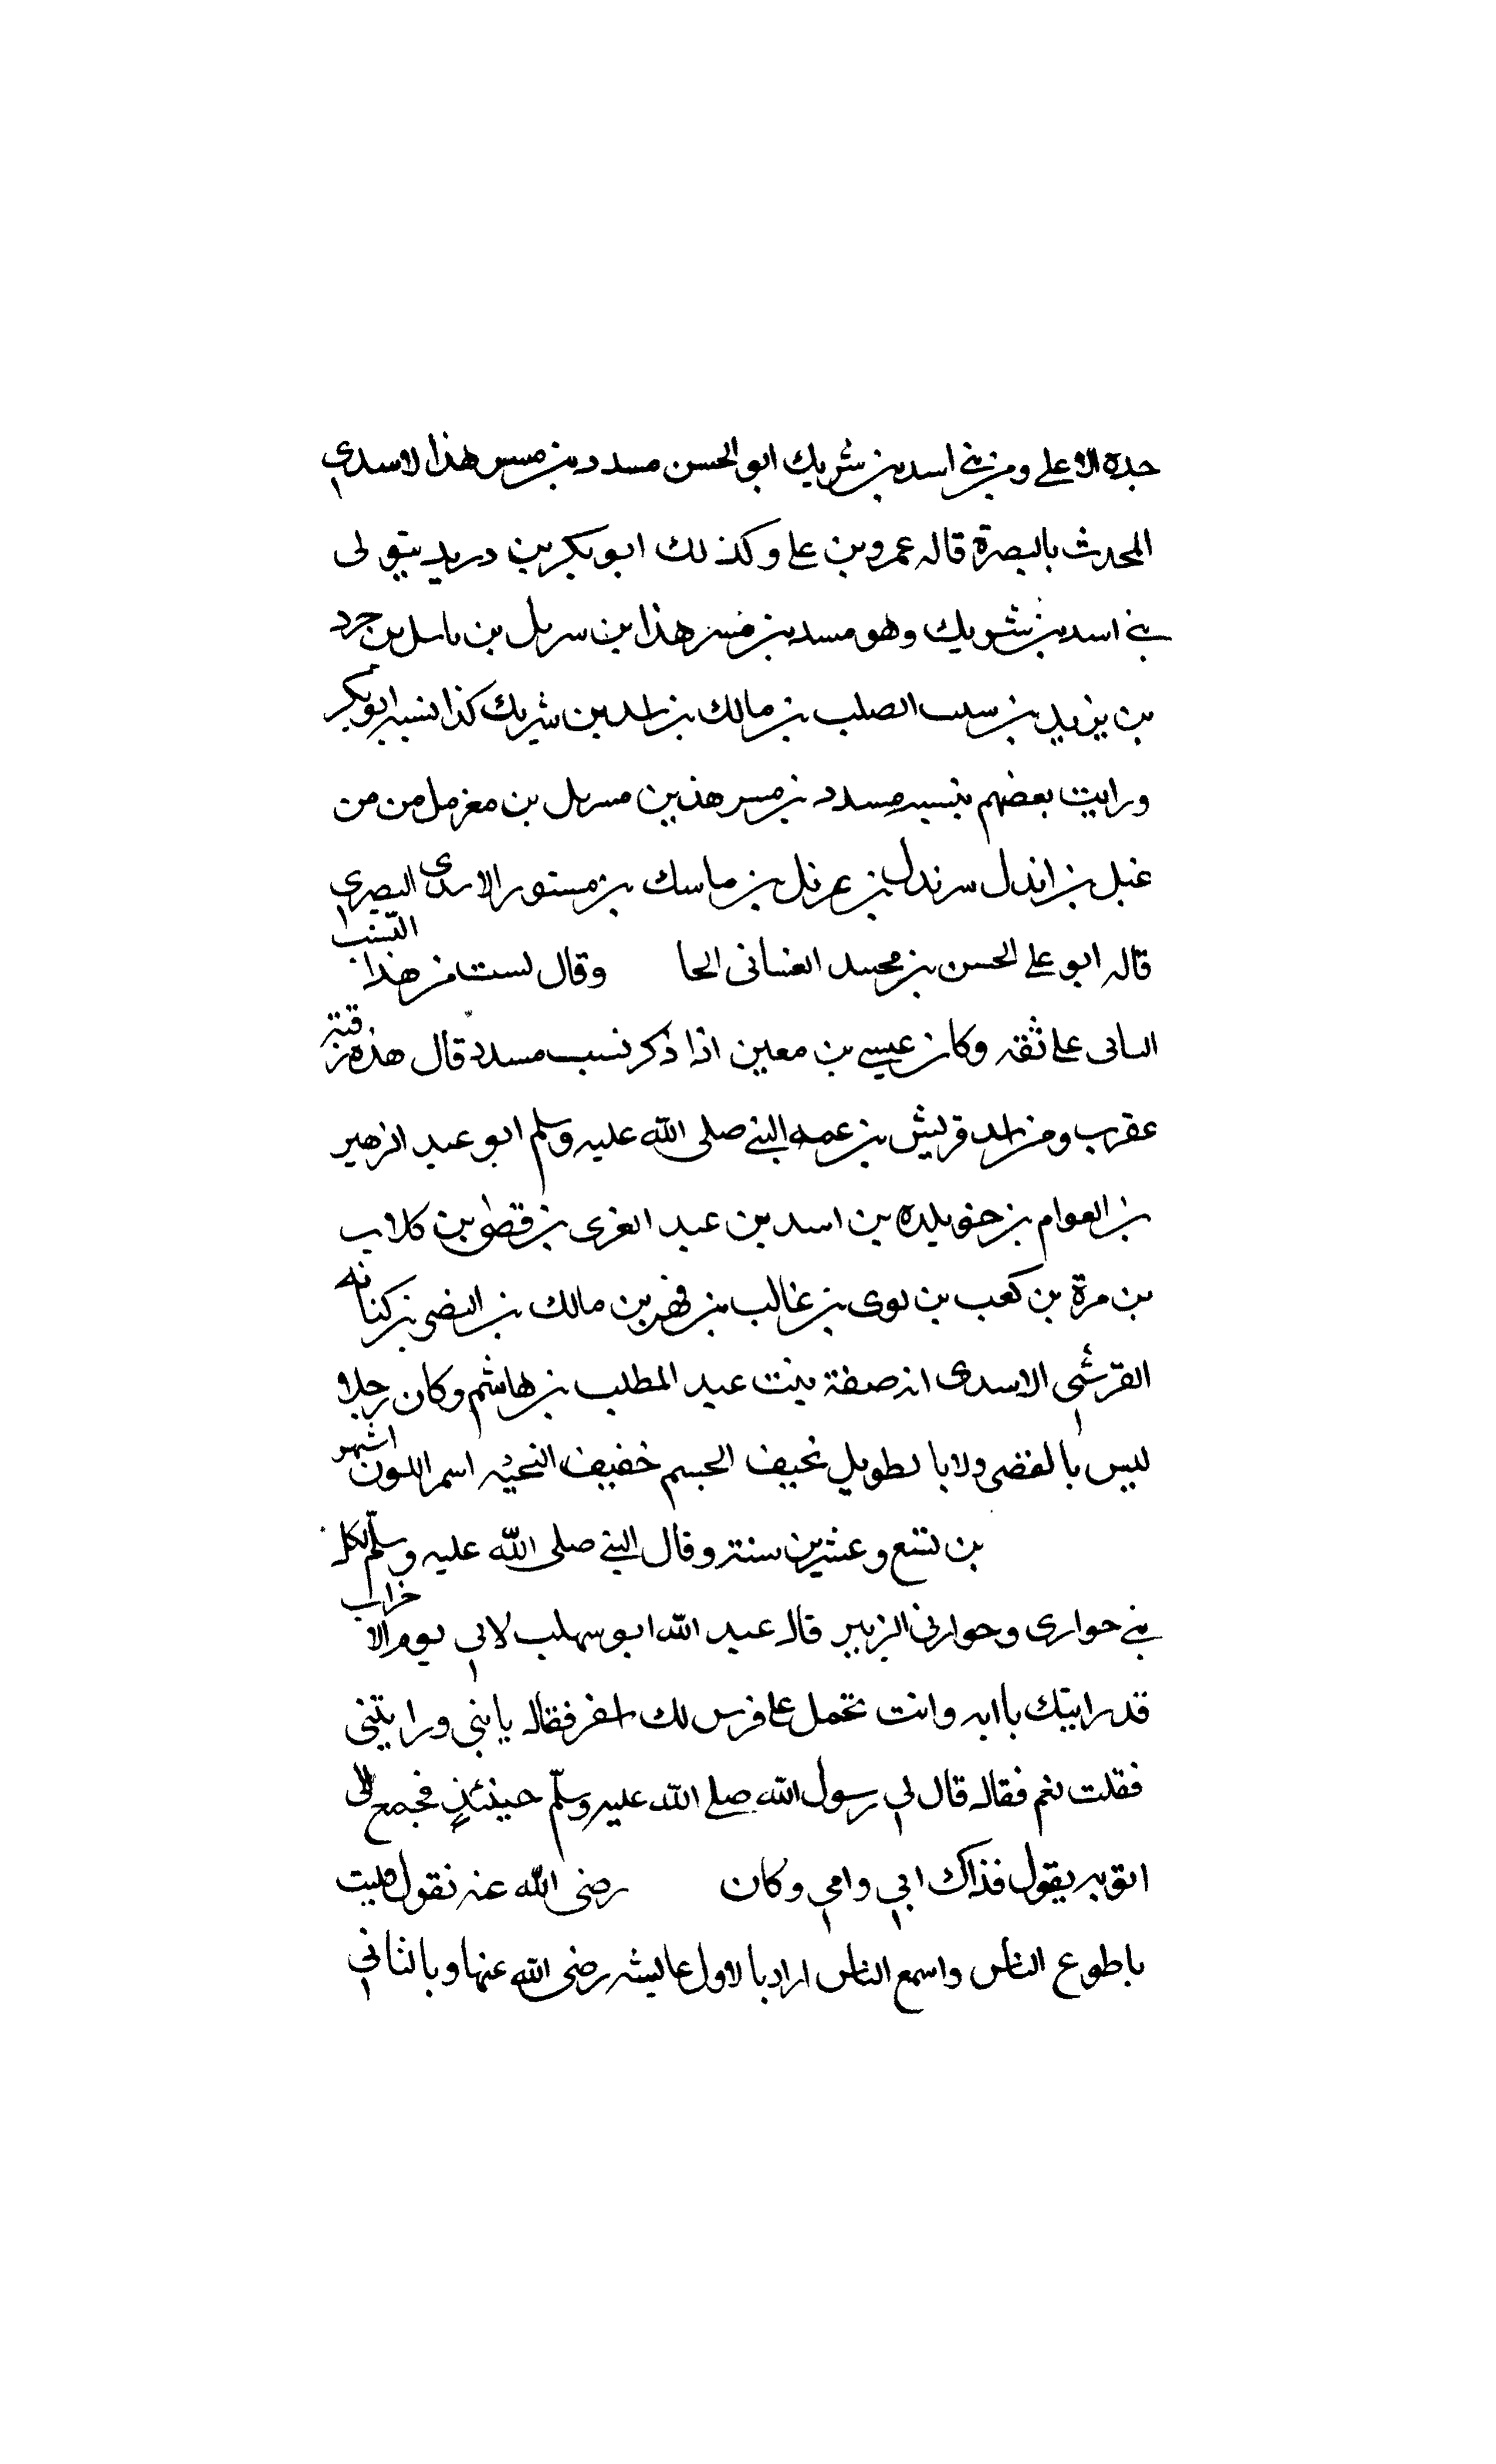 جده الاعلى ومن بنى اسد بن شريك ابو الحسن مسدد بن مسرهذا لاسدى
المحدث بالبصرة قاله عمرو بن على وكذلك ابو بكر بن دريد يتولى
بنى اسد بن شريك وهو مسد بن مسرهذا بن سربل بن ماسل بن جرد
بن يزيد بن سبب الصلب بن مالك بن اسد بن شريك كذا نسبه ابو بكر
ورايت بعضهم ينسبه مسدد بن مسرهذ بن مسربل بن مغربل من من
غبل بن اندل سرندل بن عرندل بن ماسك بن مستور الاسدى البصرى
قاله ابو على الحسن بن محمد الغسانى الحا وقال لست من هذا النسب
على ثقه وكان عيسى بن معين اذا ذكر نسب مسدد قال هذه رقية
عقرب ومن اسد قريش بن عمه النبى صلى الله عليه وسلم ابو عبد الزهير
بن العوام بن خويلده بن اسد بن عبد العزى بن قصى بن كلاب
بن مرة بن كعب بن لوى بن غالب بن فهر بن مالك بن النضى بن كنانه
القرشى الاسدى انه صفة بنت عبد المطلب بن هاشم وكان رجلا
ليس بالقضى ولا بالطويل نحيف الجسم خفيف النحية اسمر اللون اشهر
بن تسع وعشرين سنة وقال النبى صلى الله عليه وسلم لكل
نبى حوارى وحوارنى الزبير قاله عبد الله ابو سهلب لابى يوم الاخراب
قد رايتك باابه وانت تحمل على فرس لك اصفر فقاله يا بنى ورايتنى
فقلت نعم فقاله قال لى رسول الله صلى الله عليه وسلم حينئذٍ فجمع لى
ابويه يقول فذاك ابى وامى وكان رضى الله عنه نقول
باطوع الناس واسمع الناس اراد بالاول عاليشه رضى الله عنها وبالثانى